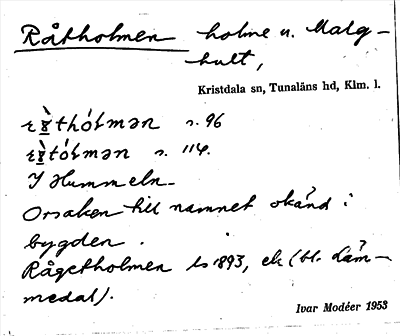 Råtholmen holme u. Malg-
hult,
Kristdala sn, Tunaläns hd, Klm. l.
s. 96
s. 114.
I Hummeln.
Orsaken till namnet okänd i
bygden.
Rågetholmen 1893, ek (bl.
medal).
Ivar Modéer 1953